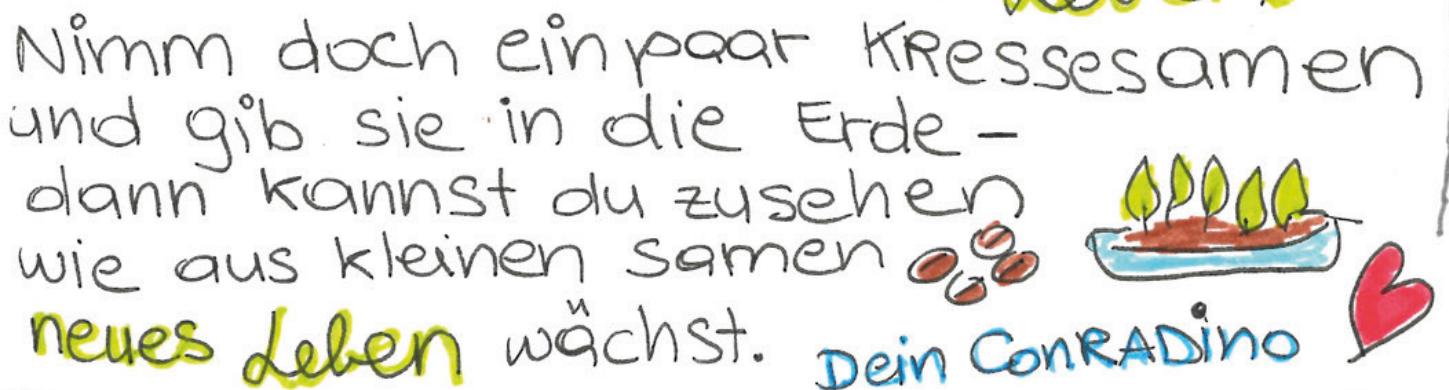 Nimm doch ein paar Kressesamen
und gib sie in die Erde -
dann kannst du zusehen
wie aus kleinen Samen
neues Leben wächst. Dein CONRADINO